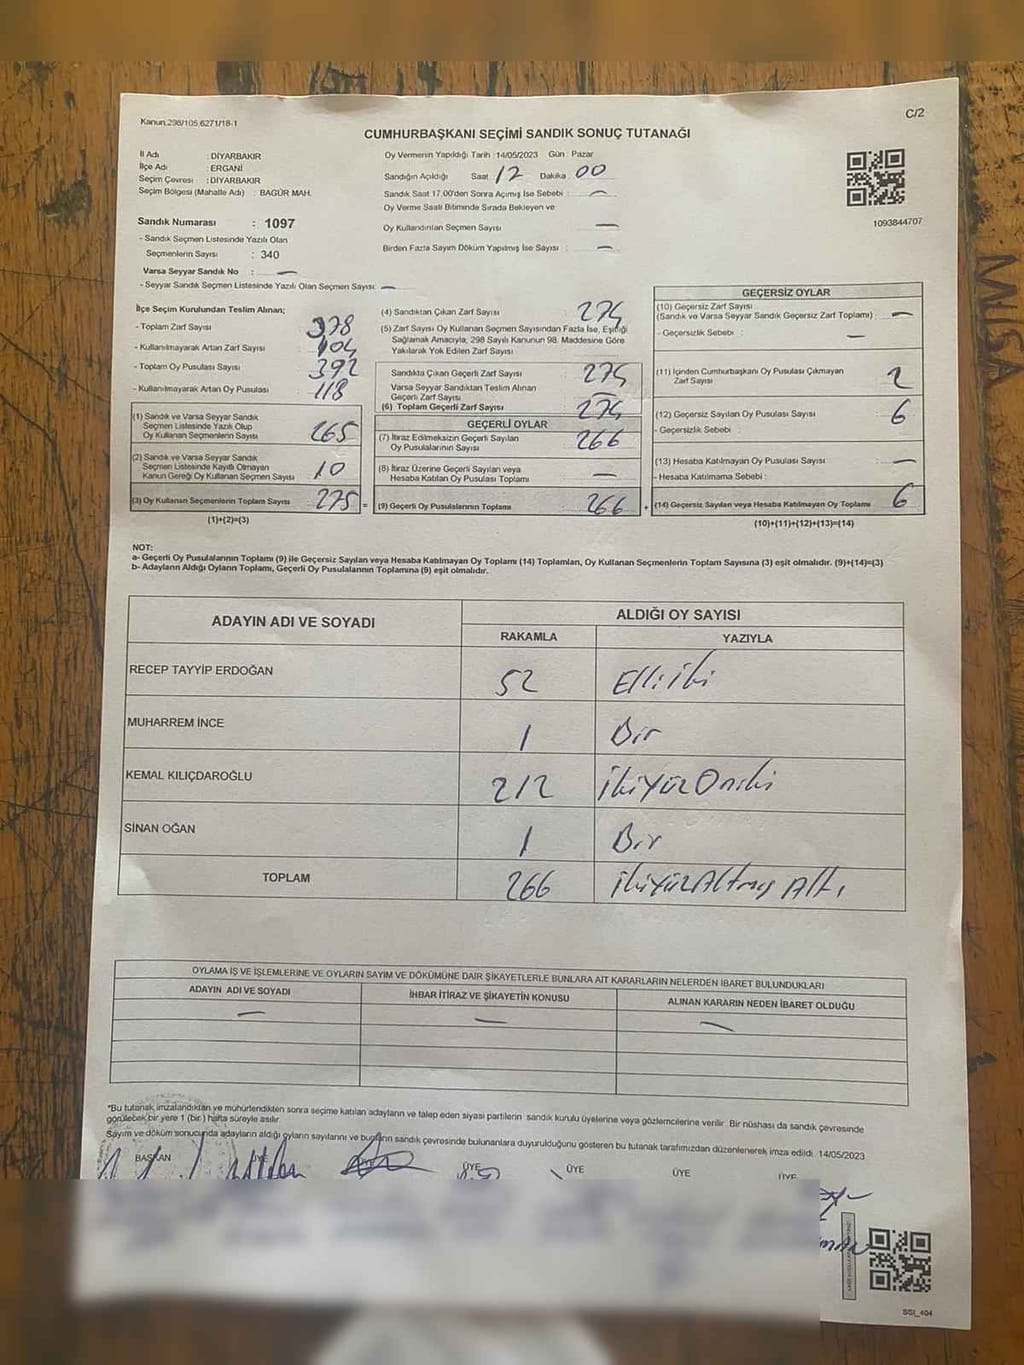 Kanun,298/105,6271/18-1
C/2
CUMHURBAŞKANI SEÇİMİ SANDIK SONUÇ TUTANAĞI
İl Adı : DİYARBAKIR
İlçe Adı : ERGANİ
Seçim Çevresi : DİYARBAKIR
Seçim Bölgesi (Mahalle Adı) : BAGÜR MAH.
Sandık Numarası : 1097
- Sandık Seçmen Listesinde Yazılı Olan
Seçmenlerin Sayısı : 340
Varsa Seyyar Sandık No : —
- Seyyar Sandık Seçmen Listesinde Yazılı Olan Seçmen Sayısı: —
Oy Vermenin Yapıldığı Tarih : 14/05/2023 Gün : Pazar
Sandığın Açıldığı Saat 12 Dakika 00
Sandık Saat 17.00'den Sonra Açımış İse Sebebi : —
Oy Verme Saati Bitiminde Sırada Bekleyen ve
Oy Kullandırılan Seçmen Sayısı —
Birden Fazla Sayım Döküm Yapılmış İse Sayısı : —
1093844707
İlçe Seçim Kurulundan Teslim Alınan;
- Toplam Zarf Sayısı 378
- Kullanılmayarak Artan Zarf Sayısı 104
- Toplam Oy Pusulası Sayısı 392
- Kullanılmayarak Artan Oy Pusulası 118
(1) Sandık ve Varsa Seyyar Sandık
Seçmen Listesinde Yazılı Olup
Oy Kullanan Seçmenlerin Sayısı 265
(2) Sandık ve Varsa Seyyar Sandık
Seçmen Listesinde Kayıtlı Olmayan
Kanun Gereği Oy Kullanan Seçmen Sayısı 10
(3) Oy Kullanan Seçmenlerin Toplam Sayısı 275 =
(1)+(2)=(3)
(4) Sandıktan Çıkan Zarf Sayısı 274
(5) Zarf Sayısı Oy Kullanan Seçmen Sayısından Fazla İse, Eşitliği
Sağlamak Amacıyla, 298 Sayılı Kanunun 98. Maddesine Göre
Yakılarak Yok Edilen Zarf Sayısı
Sandıkta Çıkan Geçerli Zarf Sayısı 274
Varsa Seyyar Sandıktan Teslim Alınan
Geçerli Zarf Sayısı —
(6) Toplam Geçerli Zarf Sayısı 274
GEÇERLİ OYLAR
(7) İtiraz Edilmeksizin Geçerli Sayılan
Oy Pusulalarının Sayısı 266
(8) İtiraz Üzerine Geçerli Sayılan veya
Hesaba Katılan Oy Pusulası Toplamı —
(9) Geçerli Oy Pusulalarının Toplamı 266 +
GEÇERSİZ OYLAR
(10) Geçersiz Zarf Sayısı
(Sandık ve Varsa Seyyar Sandık Geçersiz Zarf Toplamı) : —
- Geçersizlik Sebebi : —
(11) İçinden Cumhurbaşkanı Oy Pusulası Çıkmayan
Zarf Sayısı 2
(12) Geçersiz Sayılan Oy Pusulası Sayısı 6
- Geçersizlik Sebebi :
(13) Hesaba Katılmayan Oy Pusulası Sayısı —
- Hesaba Katılmama Sebebi :
(14) Geçersiz Sayılan veya Hesaba Katılmayan Oy Toplamı 6
(10)+(11)+(12)+(13)=(14)
NOT:
a- Geçerli Oy Pusulalarının Toplamı (9) ile Geçersiz Sayılan veya Hesaba Katılmayan Oy Toplamı (14) Toplamları, Oy Kullanan Seçmenlerin Toplam Sayısına (3) eşit olmalıdır. (9)+(14)=(3)
b- Adayların Aldığı Oyların Toplamı, Geçerli Oy Pusulalarının Toplamına (9) eşit olmalıdır.
ADAYIN ADI VE SOYADI ALDIĞI OY SAYISI
RAKAMLA YAZIYLA
RECEP TAYYİP ERDOĞAN 52 Elli iki
MUHARREM İNCE 1 Bir
KEMAL KILIÇDAROĞLU 212 İkiyüz Oniki
SİNAN OĞAN 1 Bir
TOPLAM 266 İkiyüzAltmış Altı
OYLAMA İŞ VE İŞLEMLERİNE VE OYLARIN SAYIM VE DÖKÜMÜNE DAİR ŞİKAYETLERLE BUNLARA AİT KARARLARIN NELERDEN İBARET BULUNDUKLARI
ADAYIN ADI VE SOYADI İHBAR İTİRAZ VE ŞİKAYETİN KONUSU ALINAN KARARIN NEDEN İBARET OLDUĞU
— — —
*Bu tutanak imzalandıktan ve mühürlendikten sonra seçime katılan adayların ve talep eden siyasi partilerin sandık kurulu üyelerine veya gözlemcilerine verilir. Bir nüshası da sandık çevresinde
görülebilecek bir yere 1 (bir ) hafta süreyle asılır.
Sayım ve döküm sonucunda adayların aldığı oyların sayılarını ve bunların sandık çevresinde bulunanlara duyurulduğunu gösteren bu tutanak tarafımızdan düzenlenerek imza edildi. 14/05/2023
BAŞKAN ÜYE ÜYE ÜYE ÜYE ÜYE
SSI_404
MUSA